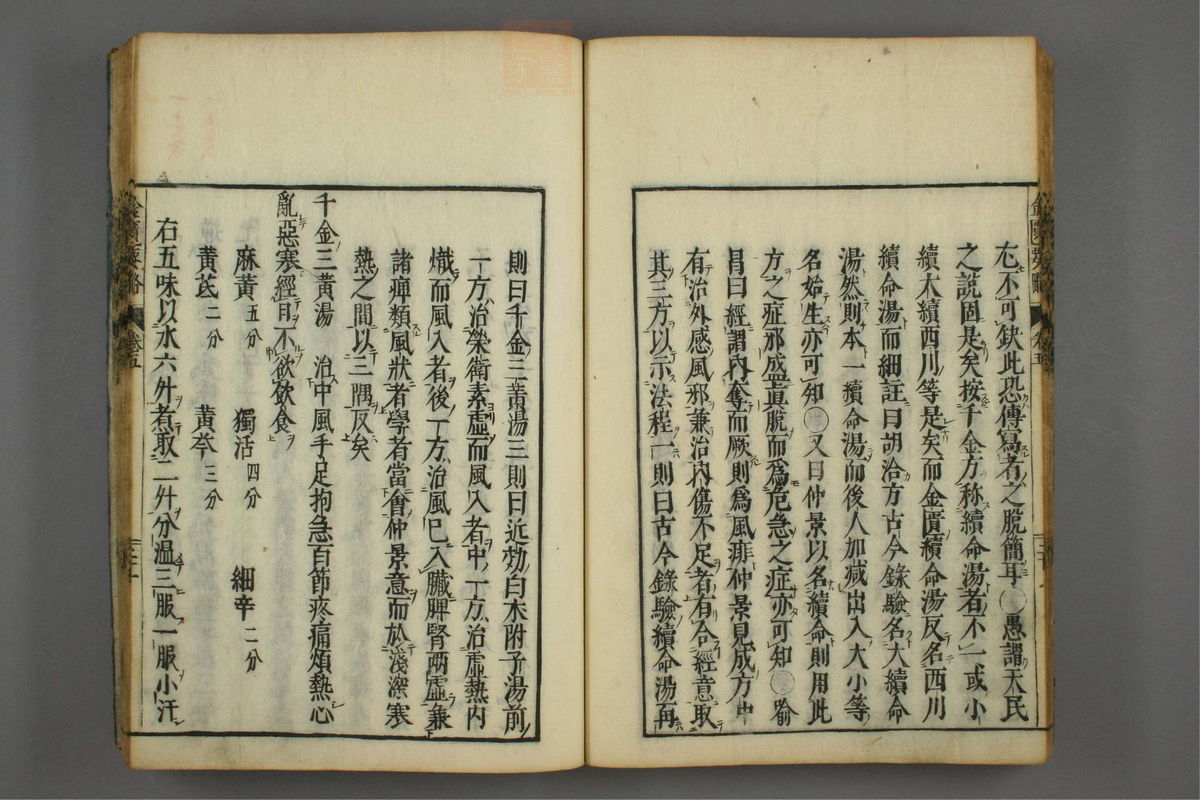 尤不可缺此恐傳寫者之脫簡耳○愚謂天民
之說固是矣按千金方称續命湯者不一或小
續大續西川等是矣而金匱續命湯反名西川
續命湯而細註曰胡洽方古今錄驗名大續命
湯然則本一續命湯而後人加減出入大小等
名始生亦可知○又曰仲景以名續命則用此
方之症邪盛眞脫而為危急之症亦可知○喻
昌曰經謂內奪而厥則為風痱仲景見成方中
有治外感風邪兼治內傷不足者有合經意取
其三方以示法程一則曰古今錄驗續命湯再
則曰千金三黃湯三則曰近効白朮附子湯前
一方治榮衛素虛而風入者中一方治虛熱內
熾而風入者後一方治風已入臟脾腎兩虛兼
諸痺類風狀者學者當會仲景意而於淺深寒
熱之間以三隅反矣
千金三黃湯 治中風手足拘急百節疼痛煩熱心
亂惡寒經日不欲飲食
麻黃五分 獨活四分 細辛二分
黃芪二分 黃芩三分
右五味以水六升煮取二升分温三服一服小汗